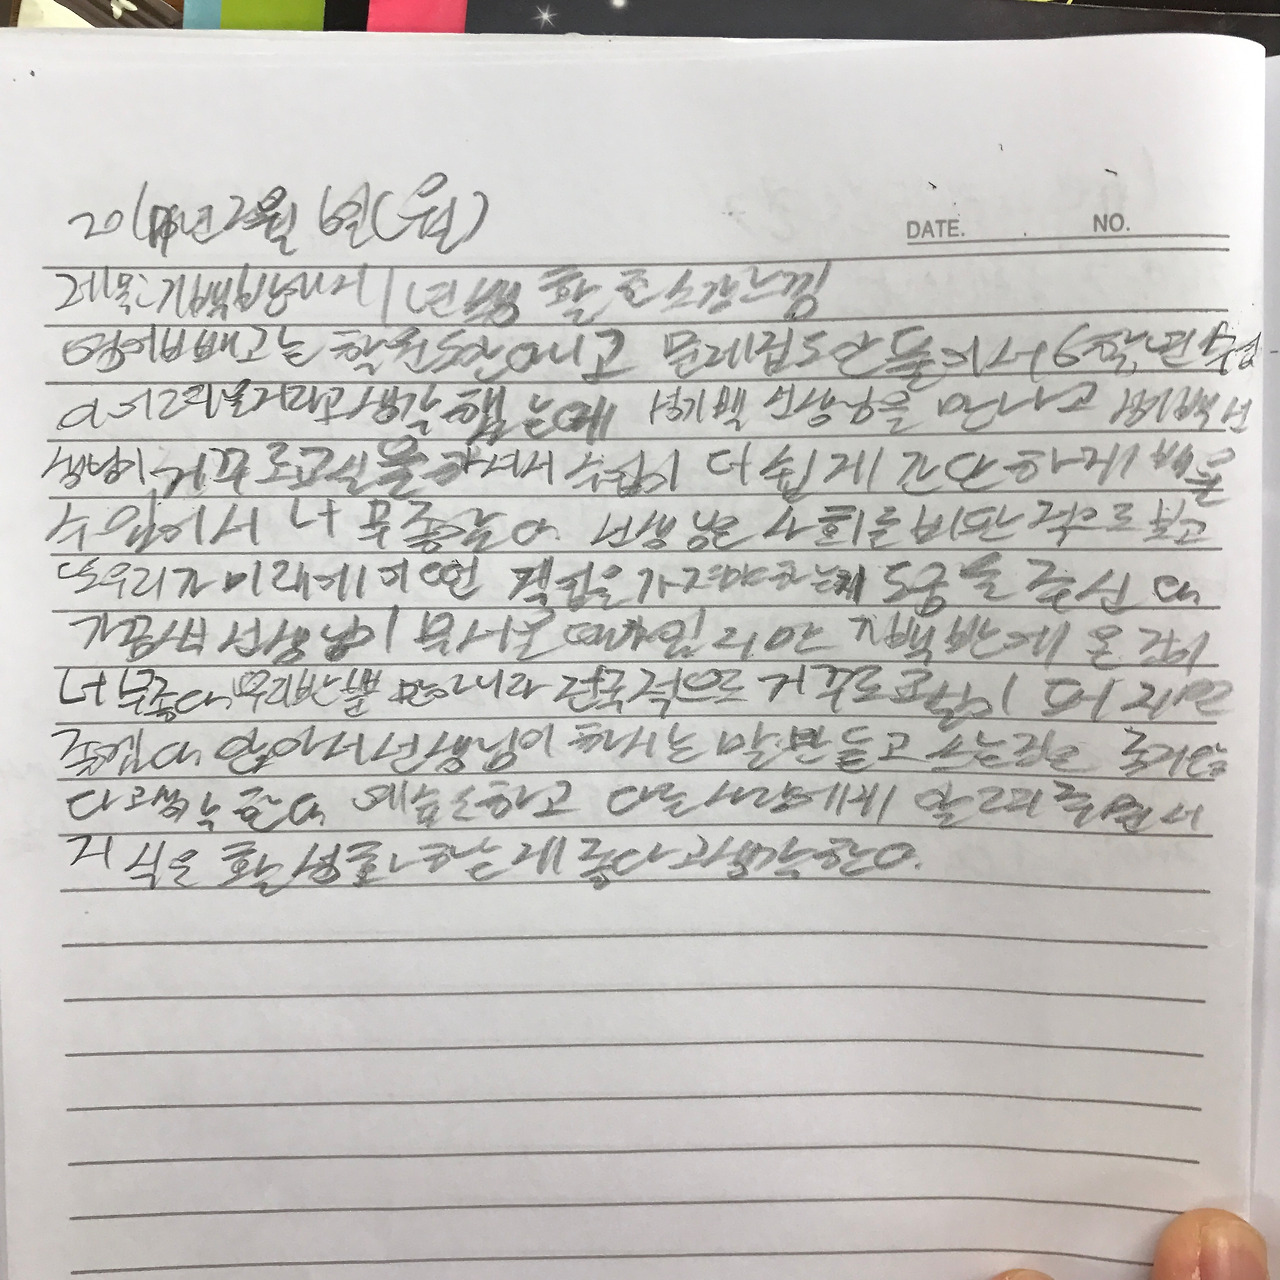 2017년 2월 6일(월)
DATE. NO.
제목: 기백반에서 1년 생활 한 소감 느낌
영어 빼고는 학원도 안다니고 문제집도 안 풀어서 6학년 수업
이 어려울거라고 생각했는데 성기백 선생님을 만나고 성기백 선
생님이 거꾸로교실을 하셔서 수업이 더 쉽게 간단하게 배울
수 있어서 너무 좋았다. 선생님은 사회를 비판적으로 보고
또 우리가 미래에 어떤 직업을 가져야 하는지 도움을 주신다.
가끔씩 선생님이 무서울 때가 있지만 기백반에 온 것이
너무 좋다. 우리반 뿐만 아니라 전국적으로 거꾸로교실이 퍼지면
좋겠다. 앉아서 선생님이 하시는 말만 듣고 쓰는것은
다고 생각한다. 예습하고 다른사람에게 알려주면서
지식을 활성화 하는게 좋다고 생각한다.